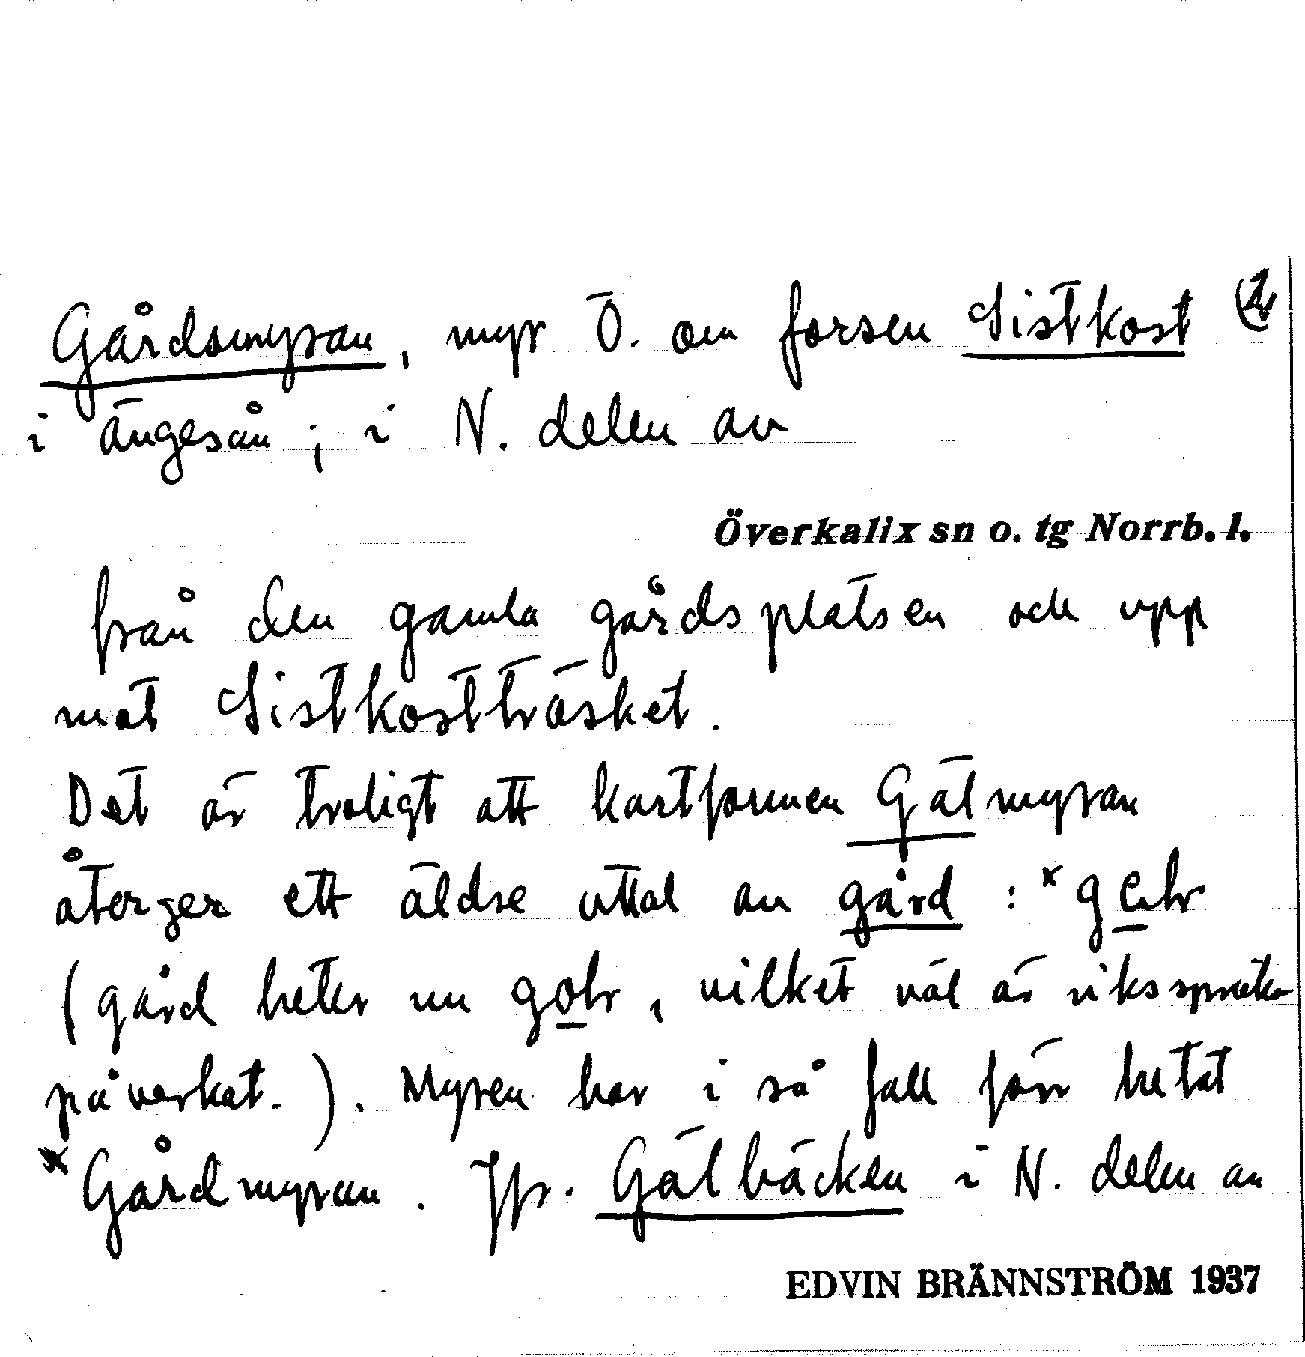 Gårdsmyran, myr Ö. om forsen Sistkost (2
i Ängesån; i N. delen av
Överkalix sn o. tg Norrb. l.
från den gamla gårdsplatsen och upp
mot Sistkostträsket.
Det är troligt att kartformen Gälmyran
återger ett äldre uttal av gård :
(gård heter nu , vilket väl är riksspråks-
påverkat.). Myren har i så fall förr hetat
*Gårdmyran. Jfr. Gälbäcken i N. delen av
EDVIN BRÄNNSTRÖM 1937